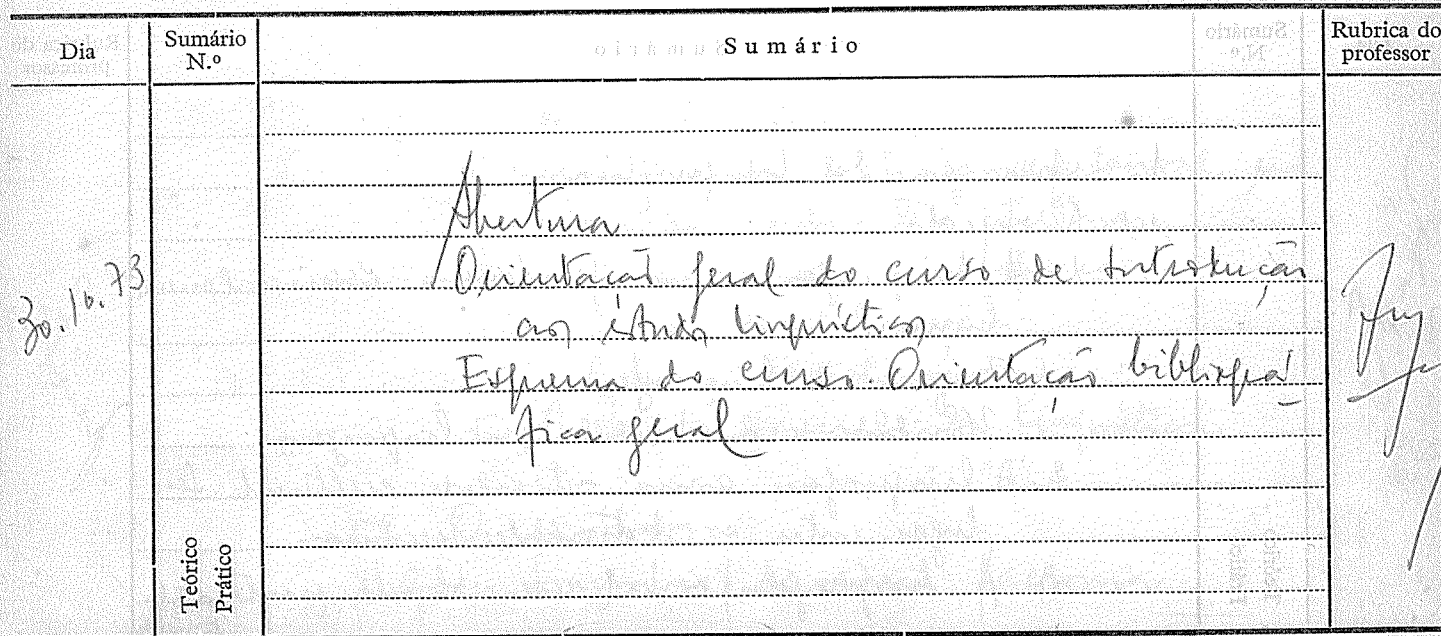 Dia Sumário N.º Sumário Rubrica do professor
30.10.73
Abertura
Orientação geral do curso de Introdução
aos estudos linguísticos
Esquema do curso. Orientação bibliográ-
fica geral
Teórico
Prático